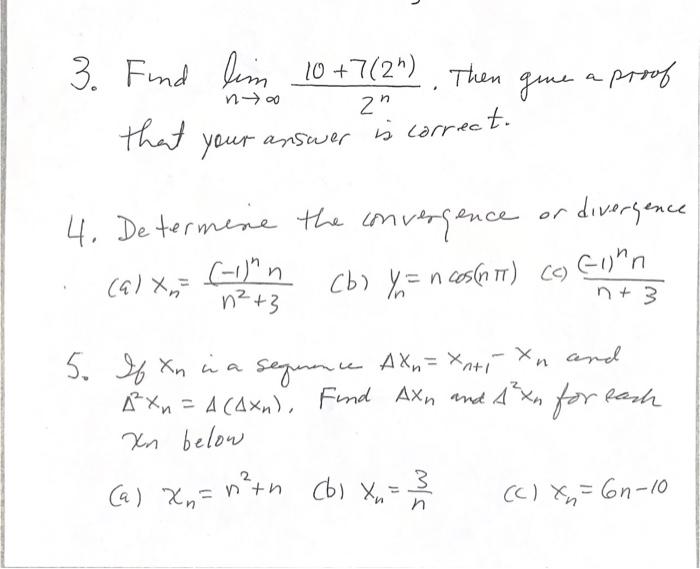 3. Find lim n→∞ 10+7(2ⁿ) / 2ⁿ . Then give a proof
that your answer is correct.
4. Determine the convergence or divergence
(a) Xₙ = (-1)ⁿ n / n²+3 (b) yₙ = n cos(nπ) (c) (-1)ⁿ n / n+3
5. If xₙ is a sequence ΔXₙ = Xₙ₊₁ - Xₙ and
Δ²Xₙ = Δ(ΔXₙ). Find ΔXₙ and Δ²Xₙ for each
xₙ below
(a) xₙ = n²+n (b) Xₙ = 3/n (c) Xₙ = 6n-10